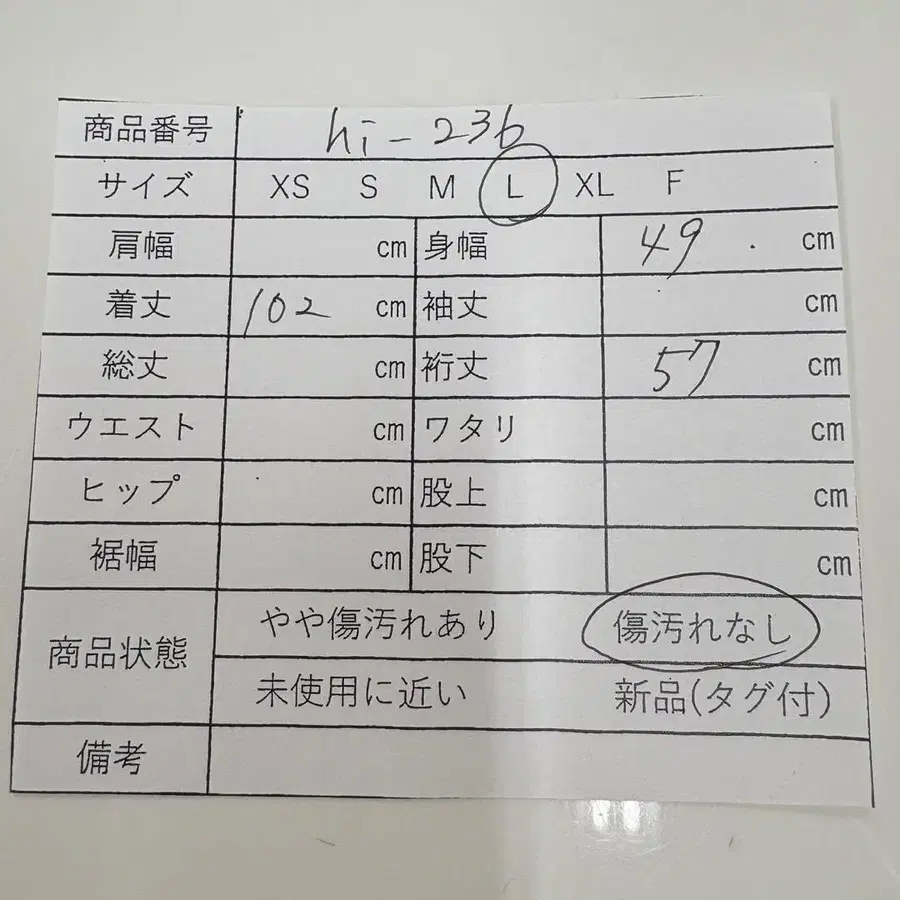 商品番号 hi-236
サイズ XS S M L XL F
肩幅 cm 身幅 49 cm
着丈 102 cm 袖丈 cm
総丈 cm 裄丈 57 cm
ウエスト cm ワタリ cm
ヒップ cm 股上 cm
裾幅 cm 股下 cm
商品状態 やや傷汚れあり 傷汚れなし
未使用に近い 新品(タグ付)
備考